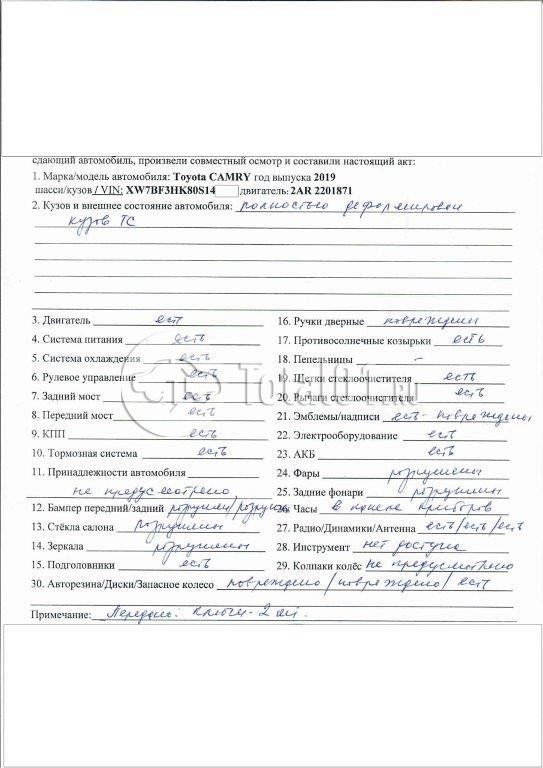 сдающий автомобиль, произвели совместный осмотр и составили настоящий акт:
1. Марка/модель автомобиля: Toyota CAMRY год выпуска 2019
шасси/кузов / VIN: XW7BF3HK80S14 двигатель: 2AR 2201871
2. Кузов и внешнее состояние автомобиля: полностью деформирован
кузов ТС
3. Двигатель есть
16. Ручки дверные повреждены
4. Система питания есть
17. Противосолнечные козырьки есть
5. Система охлаждения есть
18. Пепельницы -
6. Рулевое управление есть
19. Щетки стеклоочистителя есть
7. Задний мост есть
20. Рычаги стеклоочистителя есть
8. Передний мост есть
21. Эмблемы/надписи есть - повреждены
9. КПП есть
22. Электрооборудование есть
10. Тормозная система есть
23. АКБ есть
11. Принадлежности автомобиля
не предусмотрено
24. Фары разрушены
25. Задние фонари разрушены
12. Бампер передний/задний разрушен/разрушен
26. Часы в панели приборов
13. Стёкла салона разрушены
27. Радио/Динамики/Антенна есть/есть/есть
14. Зеркала разрушены
28. Инструмент нет доступа
15. Подголовники есть
29. Колпаки колёс не предусмотрено
30. Авторезина/Диски/Запасное колесо повреждено/повреждено/есть
Примечание: Ключи - 2 шт.
Total01.ru